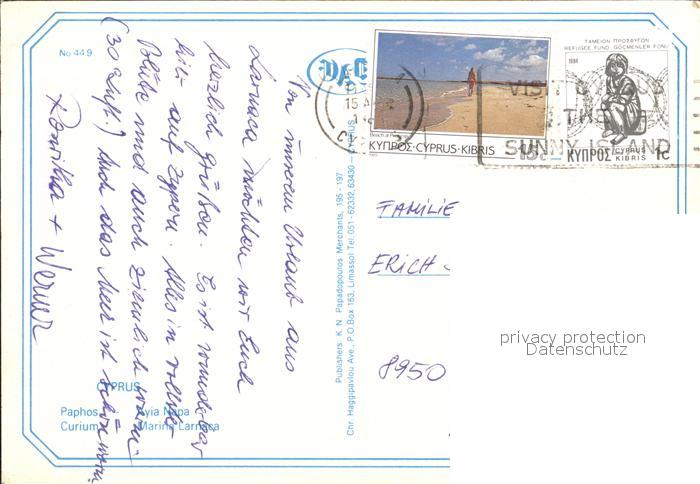 No 44.9
Von unserem Urlaub aus
Larnaca möchten wir Euch
herzlich grüßen. Es ist wunderbar
hier auf Zypern. Alles in voller
Blüte und auch ziemlich warm
(30 Luft.) Auch das Meer ist schön warm.
Romika + Werner
CYPRUS
Paphos Ayia Napa
Curium Marina Larnaca
Publishers: K. N. Papadopoulos Merchants, 195 - 197
Chr. Haggipavlou Ave., P.O.Box 163, Limassol Tel: 051 - 62332, 63430 — CYPRUS
Beach at
ΚΥΠΡΟΣ·CYPRUS·KIBRIS 15c
ΤΑΜΕΙΟΝ ΠΡΟΣΦΥΓΩΝ
REFUGEE FUND GÖÇMENLER FONU
1984
ΚΥΠΡΟΣ CYPRUS KIBRIS 1c
VISIT CYPRUS
THE
SUNNY ISLAND
FAMILIE
ERICH
8950
privacy protection
Datenschutz